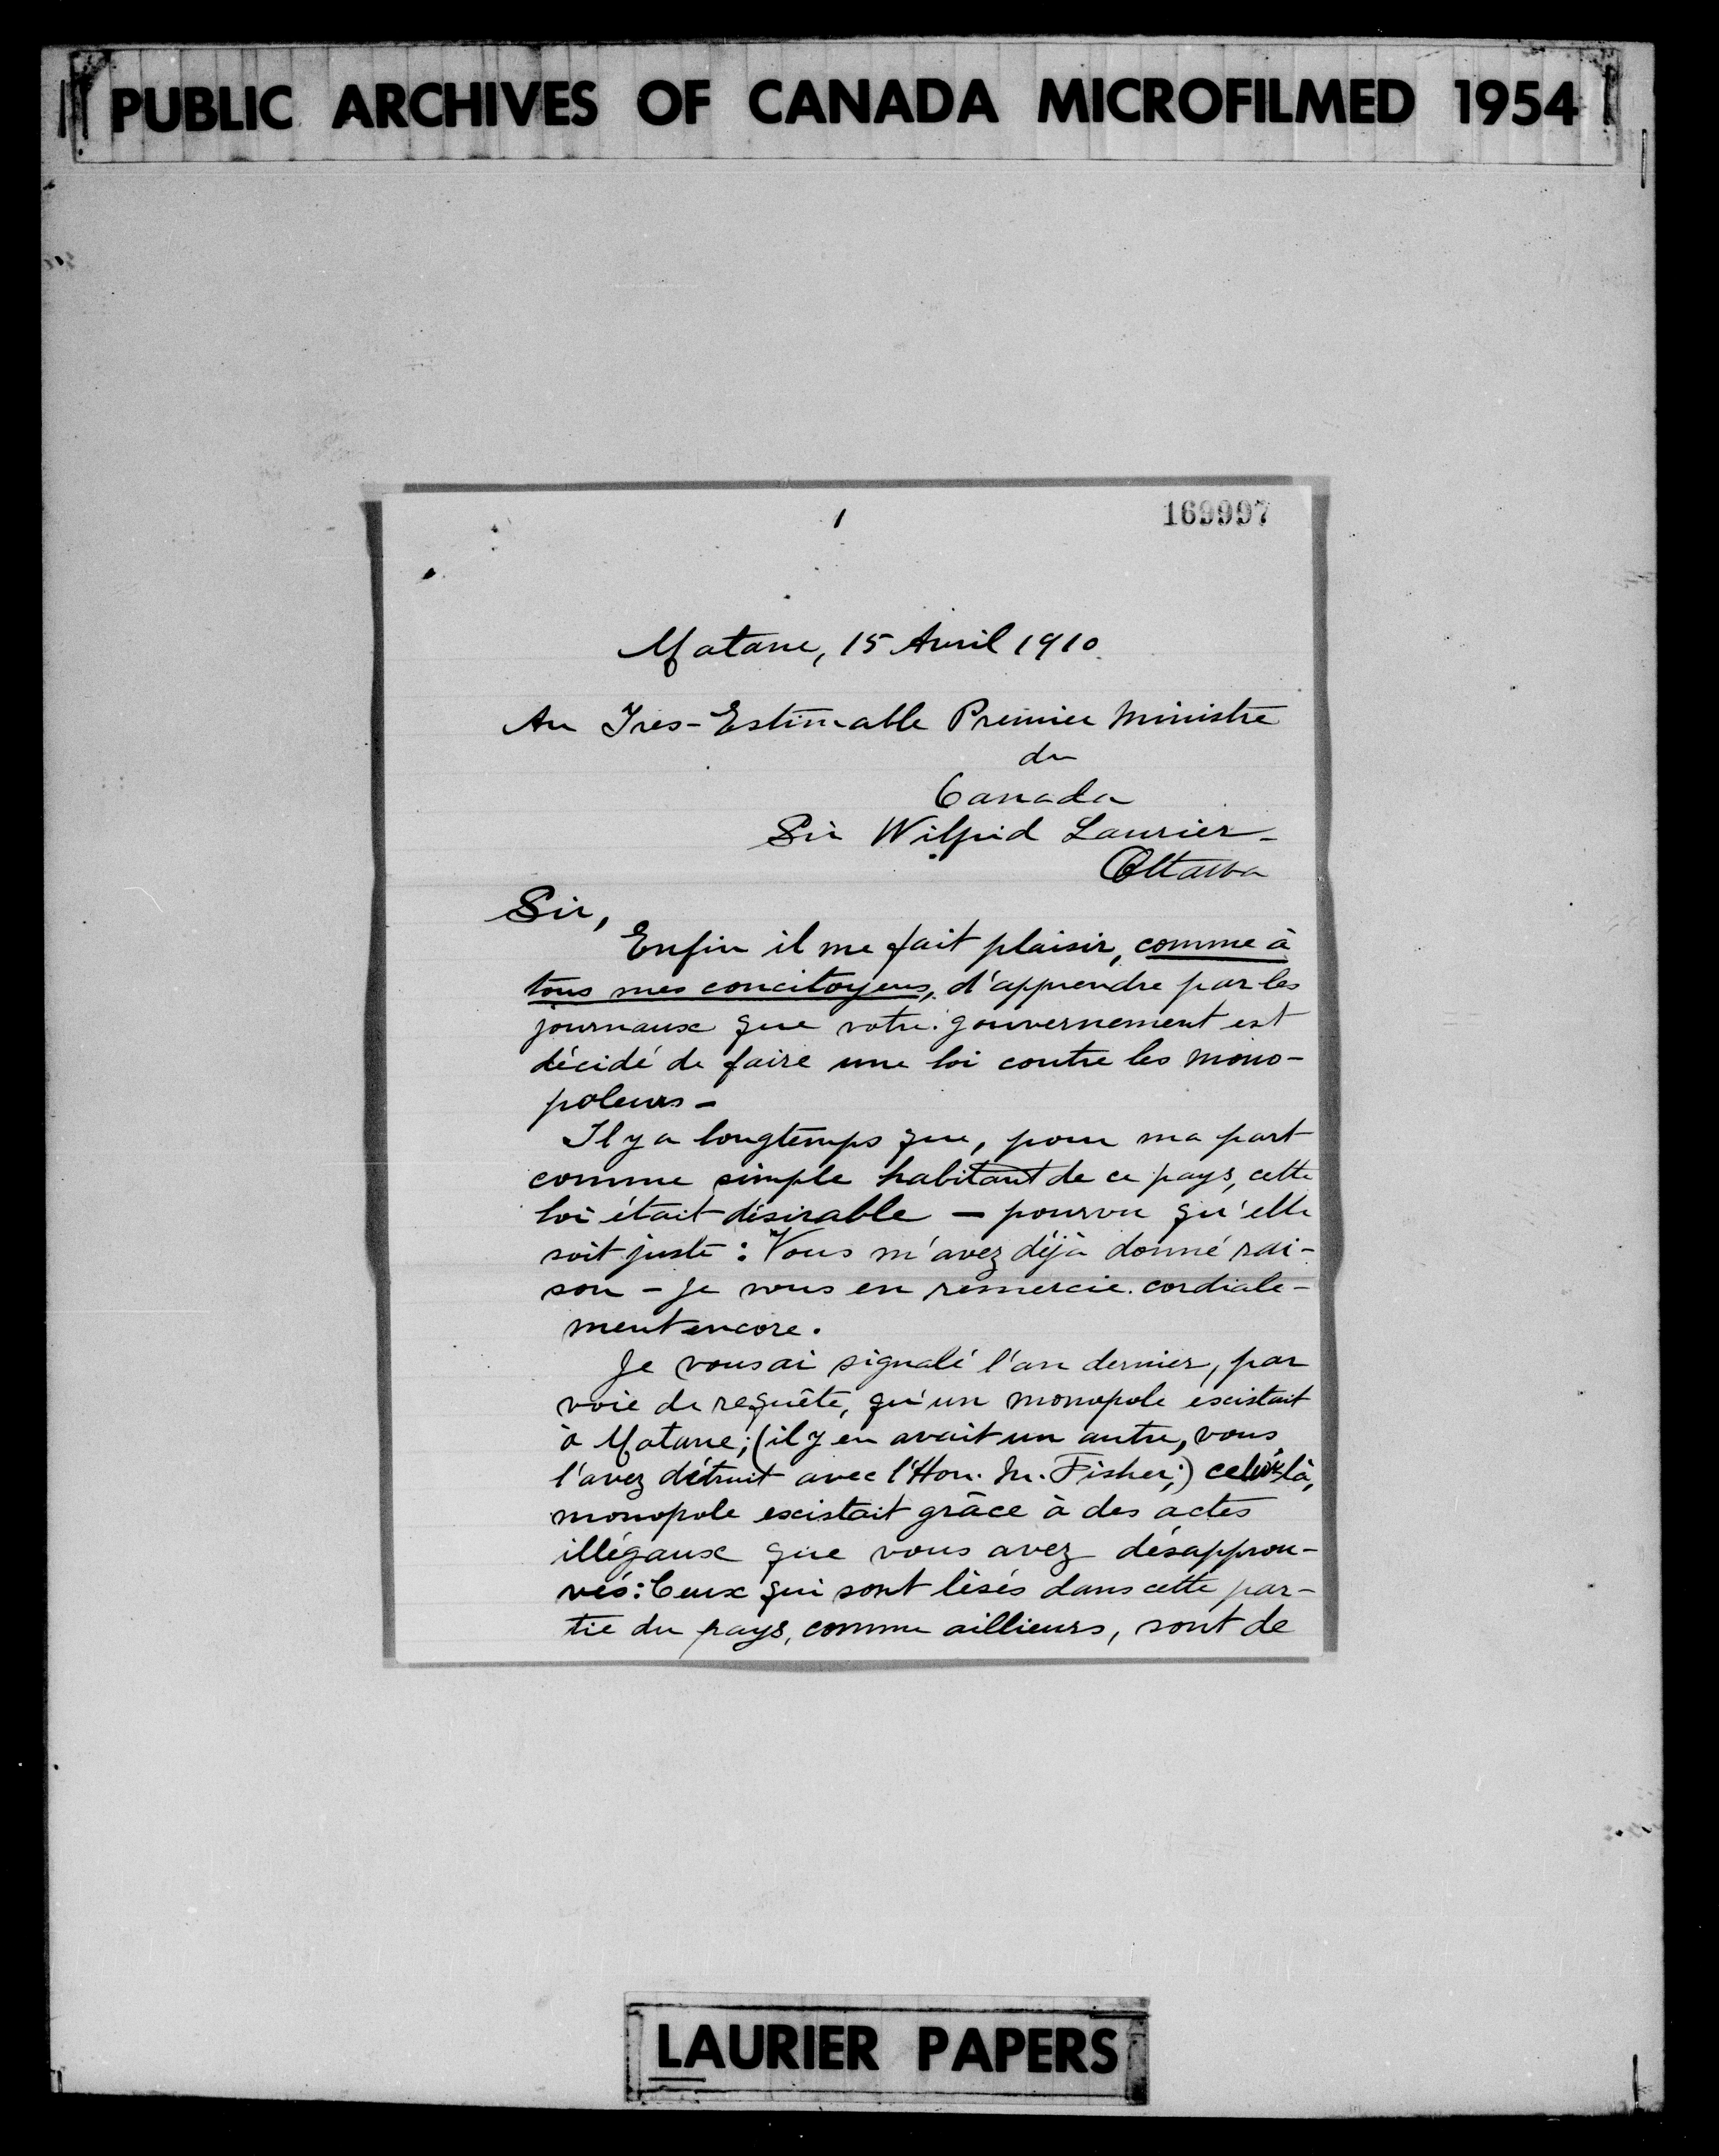 PUBLIC ARCHIVES OF CANADA MICROFILMED 1954
1
169997
Matane, 15 Avril 1910.
Au Tres-Estimable Premier Ministre
du
Canada
Sir Wilfrid Laurier-
Ottawa
Sir,
Enfin il me fait plaisir, comme à
tous mes concitoyens, d'apprendre par les
journaux que votre gouvernement est
décidé de faire une loi contre les mono-
poleurs-
Il y a longtemps que, pour ma part
comme simple habitant de ce pays, cette
loi était désirable - pourvu qu'elle
soit juste: Vous m'avez déjà donné rai-
son - Je vous en remercie cordiale-
ment encore.
Je vous ai signalé l'an dernier, par
voie de requête, qu'un monopole excistait
à Matane; (il y en avait un autre, vous
l'avez détruit avec l'Hon. M. Fisher;) celui là,
monopole excistait grâce à des actes
illégaux que vous avez désapprou-
vés: Ceux qui sont lésés dans cette par-
tie du pays, comme aillieurs, sont de
LAURIER PAPERS